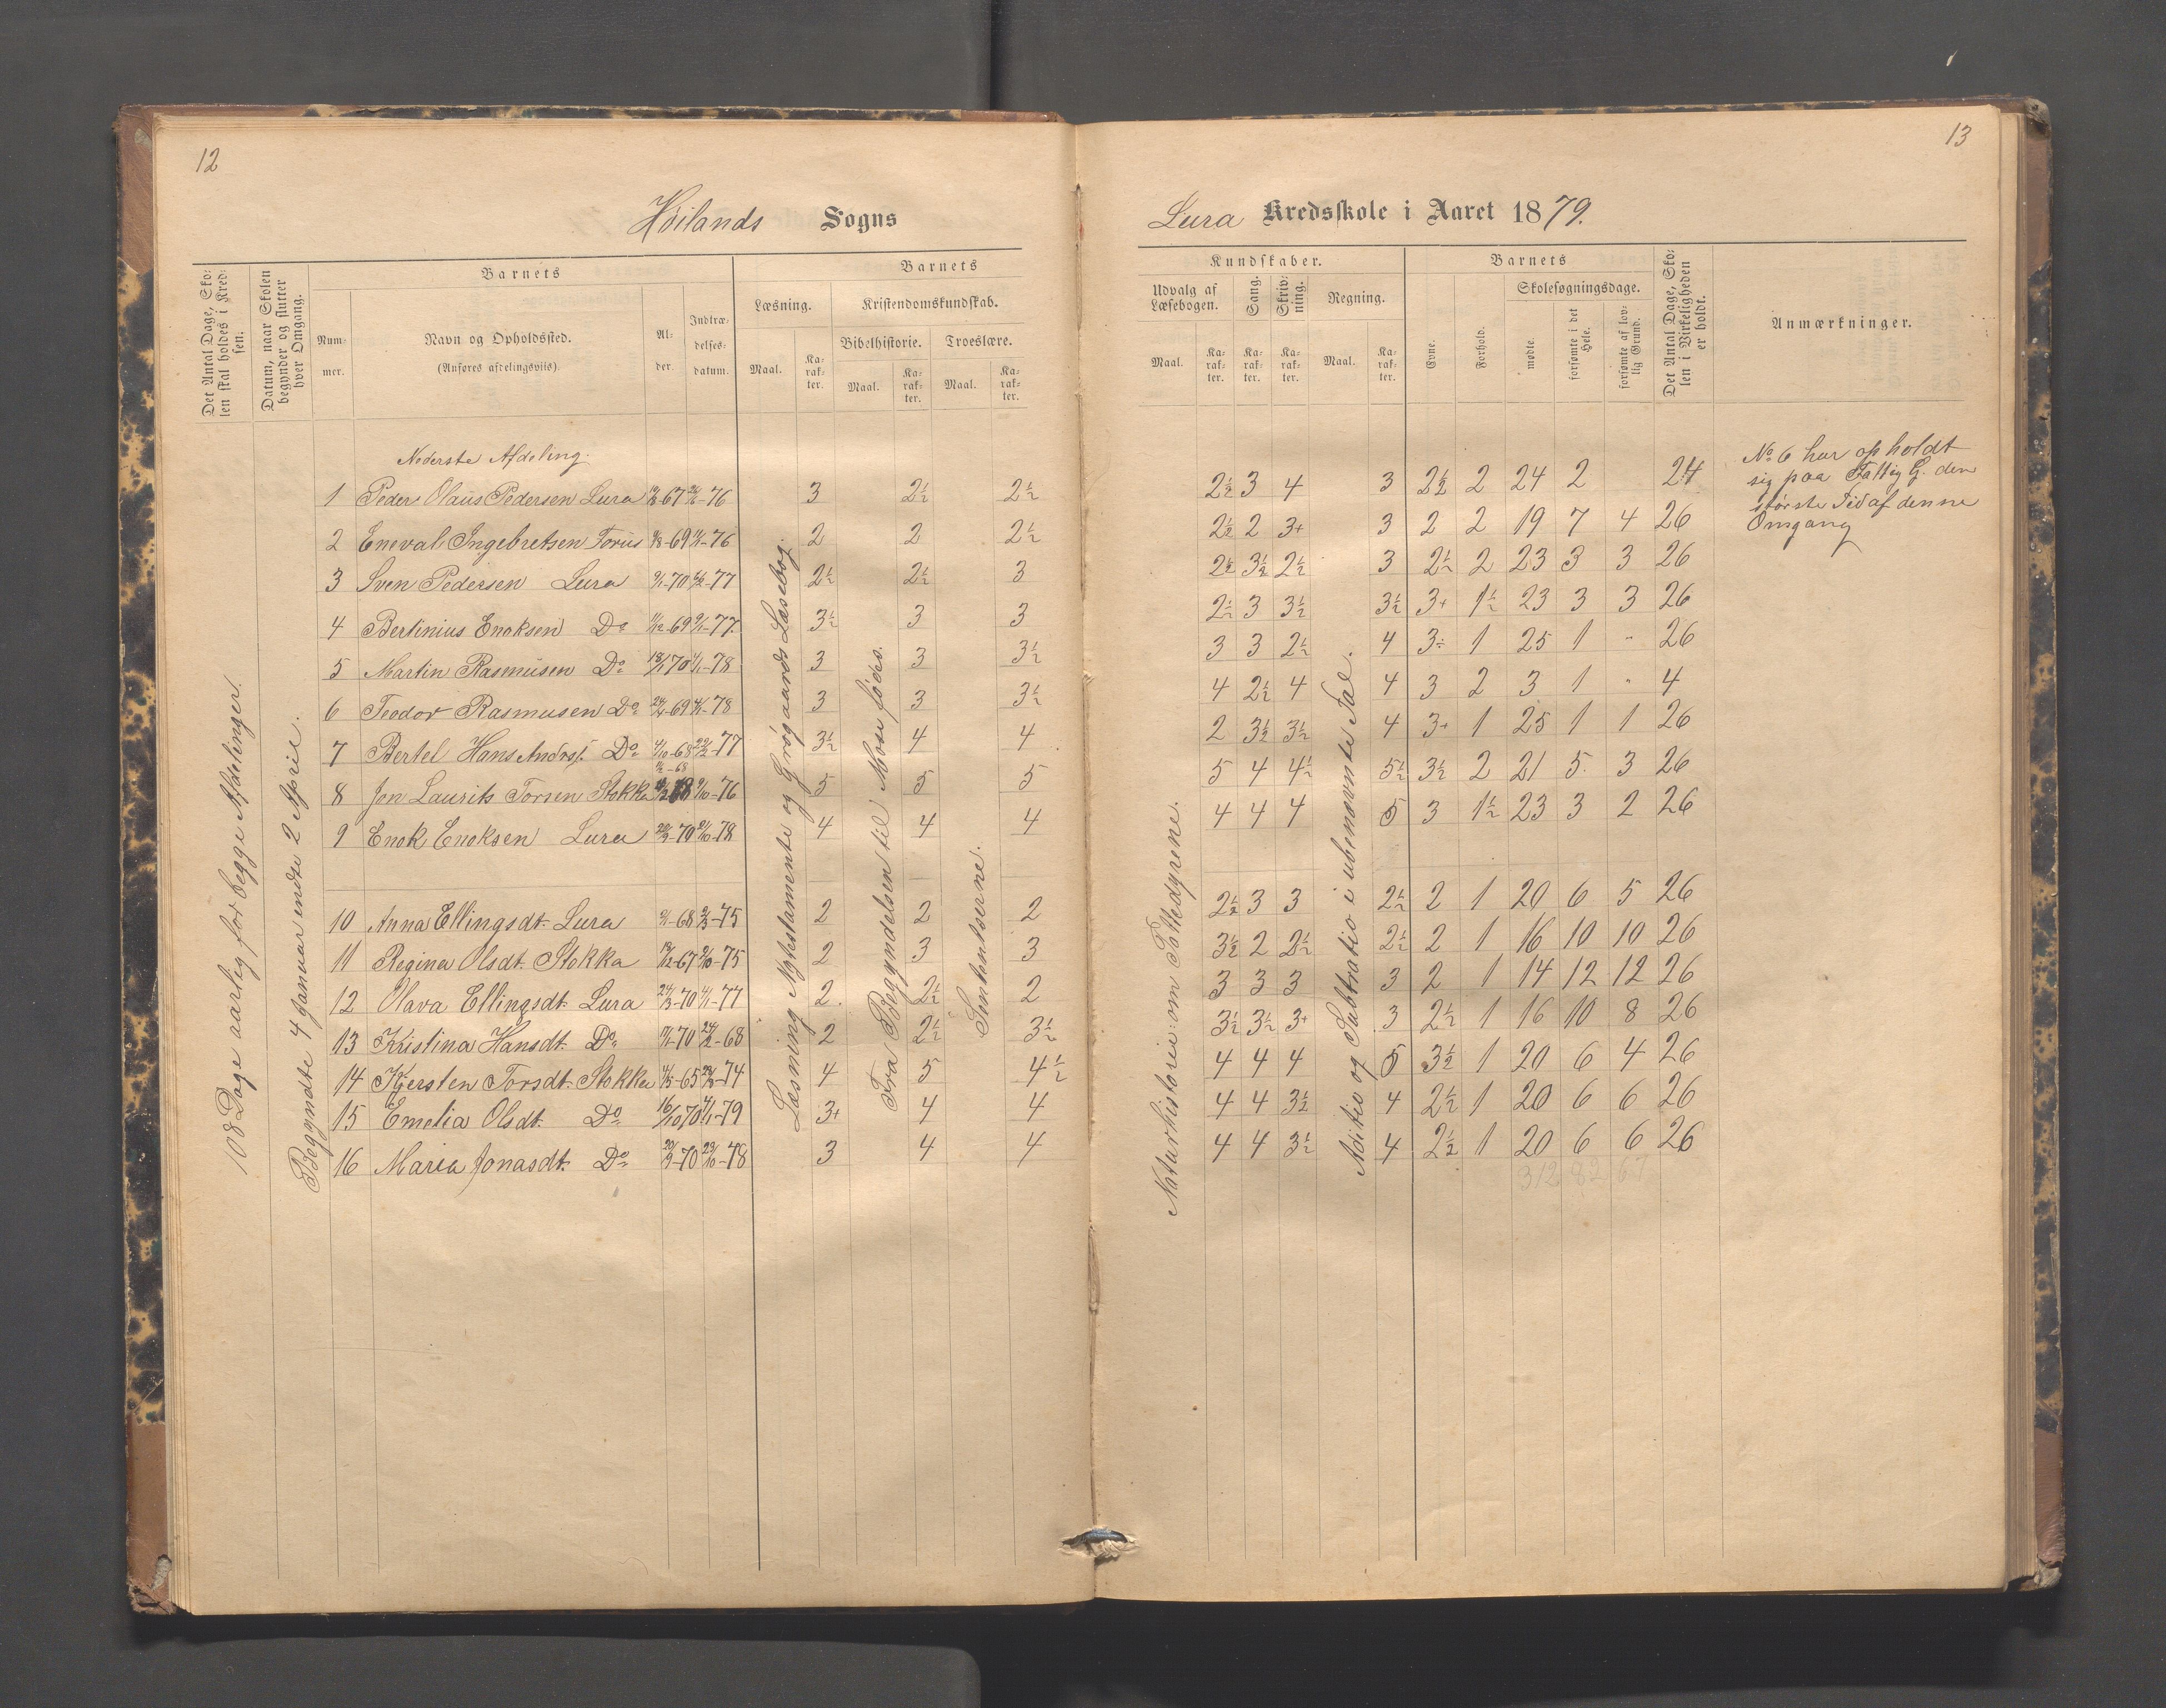 12
Höilands Sogns
Det Antal Dage, Sko-
len skal holdes i Kred-
sen.
Datum, naar Skolen
begynder og slutter
hver Omgang.
Barnets
Num-
mer.
Navn og Opholdssted.
(Anføres afdelingsviis).
Al-
der.
Indtræ-
delses-
datum.
Barnets
Læsning.
Maal.
Ka-
rak-
ter.
Kristendomskundskab.
Bibelhistorie.
Maal.
Ka-
rak-
ter.
Troeslære.
Maal.
Ka-
rak-
ter.
108 Dage aarleg for begge Afdelinger.
Begyndte 4 Januar endte 2 April.
Læsning Nytestamente og Grøgaards Læsebog.
Fra Begyndelsen til Mose fødes.
Sententserne.
Nederste Afdeling.
1 Peder Olaus Pedersen Lura 67 76 3 2½ 2½
2 Eneval Ingebretsen Forus 69 76 2 2 2½
3 Sven Pedersen Lura 70 77 2½ 2½ 3
4 Bertinius Enoksen Do 69 77 3½ 3 3
5 Martin Rasmusen Do 70 78 3 3 3½
6 Teodor Rasmusen Do 69 78 3 3 3½
7 Bertel Hans Andrsf. Do 68 77 3½ 4 4
8 Jon Laurits Torsen Stokka 68 76 5 5 5
9 Enok Enoksen Lura 70 78 4 4 4
10 Anna Ellingsdt. Lura 68 75 2 2 2
11 Regina Olsdt. Stokka 67 75 2 3 3
12 Olava Ellingsdt. Lura 70 77 2 2½ 2
13 Kristina Hansdt. Do 70 68 2 2½ 3½
14 Kjersten Torsdt. Stokka 65 74 4 5 4½
15 Emelia Olsdt. Do 70 79 3+ 4 4
16 Maria Jonasdt. Do 70 78 3 4 4
13
Lura Kredsskole i Aaret 1879.
Kundskaber.
Udvalg af
Læsebogen.
Maal.
Ka-
rak-
ter.
Sang.
Ka-
rak-
ter.
Skriv-
ning.
Ka-
rak-
ter.
Regning.
Maal.
Ka-
rak-
ter.
Barnets
Evne.
Forhold.
Skolesøgningsdage.
mødte.
forsømte i det
Hele.
forsømte af lov-
lig Grund.
Det Antal Dage, Sko-
len i Virkeligheden
er holdt.
Anmærkninger.
Naturhistorie: om Pattedyrene.
Aditio og Subtratio i ubenævnte Tal.
2½ 3 4 3 2½ 2 24 2 24
2½ 2 3+ 3 2 2 19 7 4 26
2½ 3½ 2½ 3 2½ 2 23 3 3 26
2½ 3 3½ 3½ 3+ 1½ 23 3 3 26
3 3 2½ 4 3÷ 1 25 1 " 26
4 2½ 4 4 3 2 3 1 " 4
2 3½ 3½ 4 3+ 1 25 1 1 26
5 4 4½ 5½ 3½ 2 21 5 3 26
4 4 4 5 3 1½ 23 3 2 26
2½ 3 3 2½ 2 1 20 6 5 26
3½ 2 2½ 2½ 2 1 16 10 10 26
3 3 3 3 2 1 14 12 12 26
3½ 3½ 3+ 3 2½ 1 16 10 8 26
4 4 4 5 3½ 1 20 6 4 26
4 4 3½ 4 2½ 1 20 6 6 26
4 4 3½ 4 2½ 1 20 6 6 26
312 82 67
No 6 har opholdt
sig paa Fattig G. den
største Tid af denne
Omgang